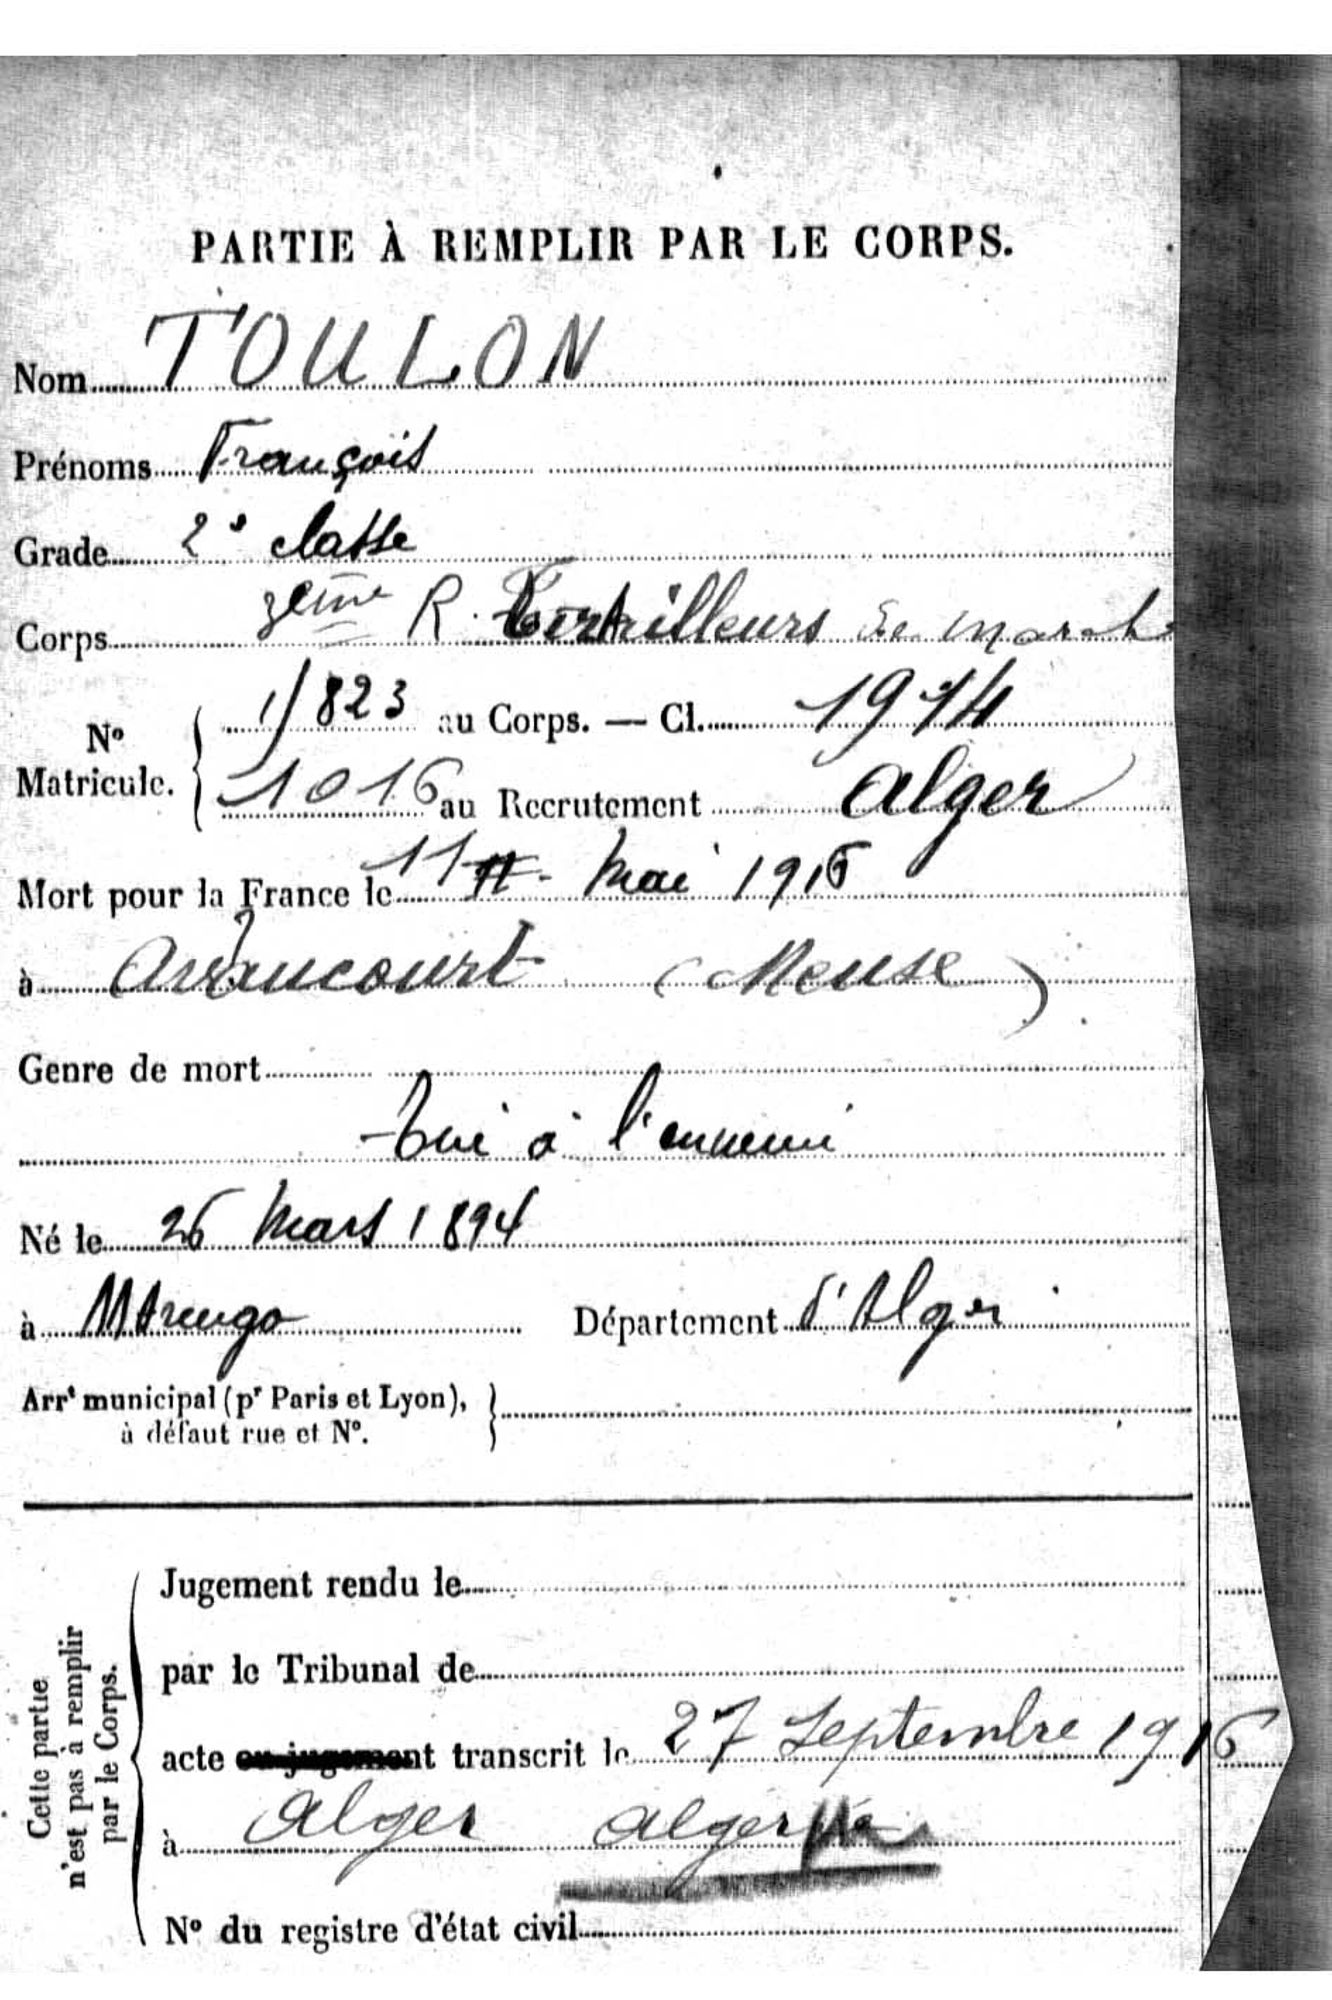 PARTIE À REMPLIR PAR LE CORPS.
Nom TOULON
Prénoms François
Grade 2e classe
Corps 3eme R. Tirailleurs de marche
No Matricule. { 1/823 au Corps. — Cl. 1914
1016 au Recrutement Alger
Mort pour la France le 11 Mai 1916
à Avaucourt (Meuse)
Genre de mort
Tué à l'ennemi
Né le 26 Mars 1894
à Marengo Département d'Alger
Arrt municipal (pr Paris et Lyon), }
à défaut rue et No.
Cette partie
n'est pas à remplir
par le Corps.
Jugement rendu le
par le Tribunal de
acte ou jugement transcrit le 27 Septembre 1916
à Alger Algérie
No du registre d'état civil